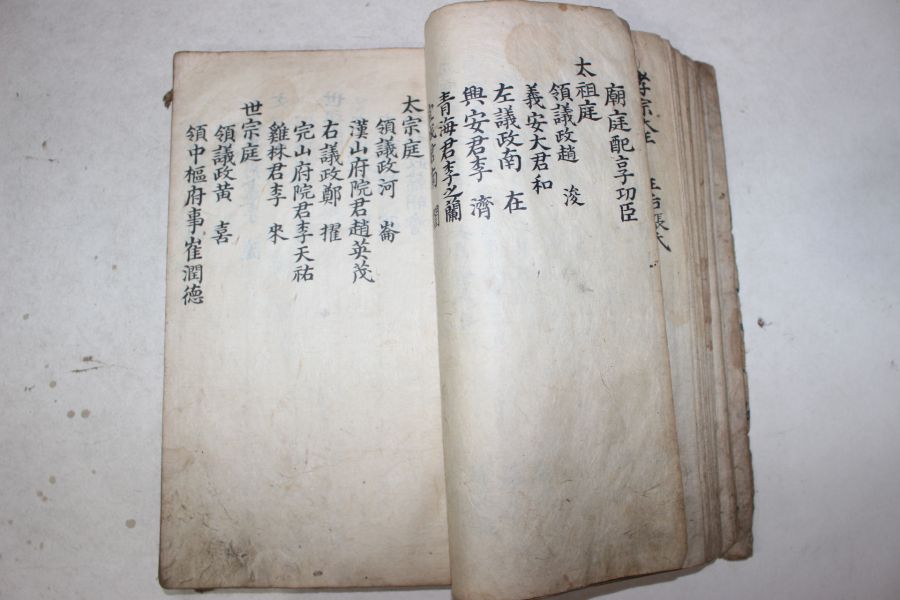 孝宗
廟庭配享功臣
太祖庭
領議政趙 浚
義安大君和
左議政南 在
興安君李 濟
青海君李之蘭
太宗庭
領議政河 崙
漢山府院君趙英茂
右議政鄭 擢
完山府院君李天祐
雞林君李 來
世宗庭
領議政黃 喜
領中樞府事崔潤德